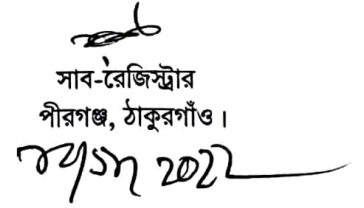 সাব-রেজিস্ট্রার
পীরগঞ্জ, ঠাকুরগাঁও।
2022